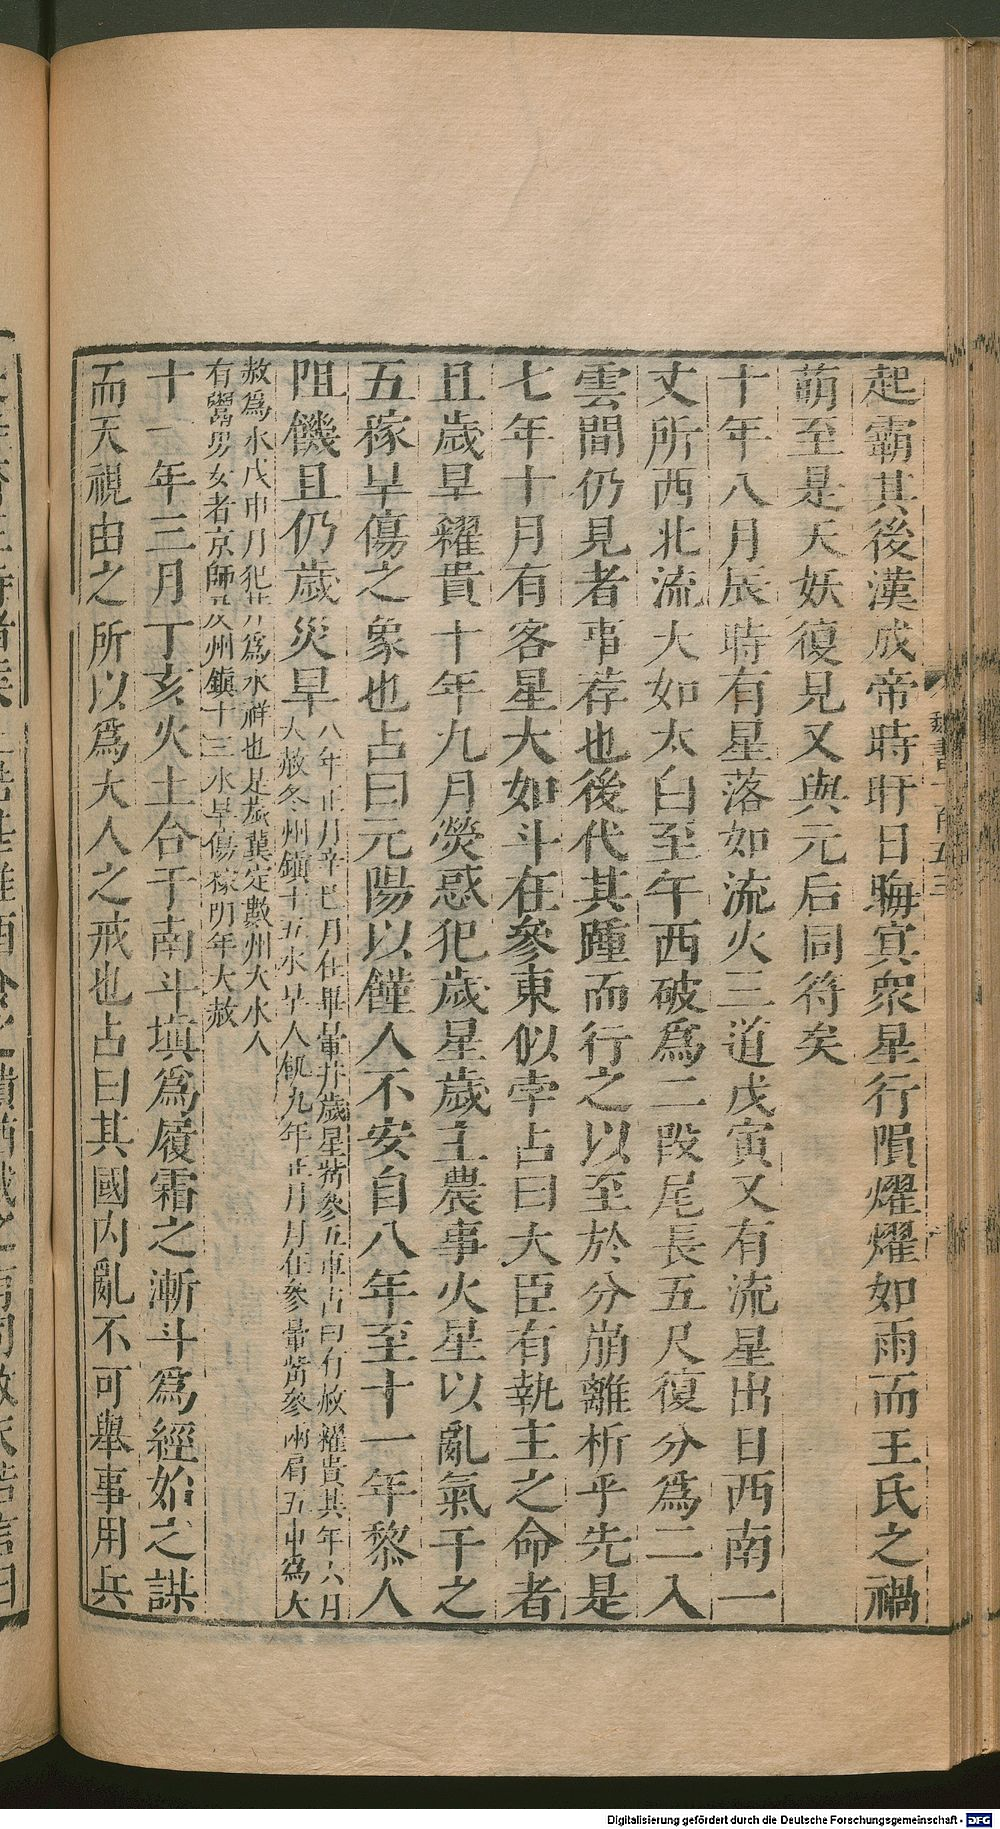 起霸其後漢成帝時旰日晦寘衆星行隕燿燿如雨而王氏之禍
萌至是天妖復見又與元后同符矣
十年八月辰時有星落如流火三道戊寅又有流星出日西南一
丈所西北流大如太白至午西破爲二段尾長五尺復分爲二入
雲間仍見者事荐也後代其踵而行之以至於分崩離析乎先是
七年十月有客星大如斗在參東似孛占曰大臣有執主之命者
且歲旱糴貴十年九月熒惑犯歲星歲主農事火星以亂氣干之
五稼旱傷之象也占曰元陽以饉人不安自八年至十一年黎人
阻饑且仍歲災旱
八年正月辛巳月在畢暈井歲星觜參五車占曰有赦糴貴其年六月
大赦冬州鎮十五水旱人飢九年正月月在參暈觜參兩肩五車爲大
赦爲水戊申月犯 爲水祥也是歲冀定數州大水人
有鬻男女者京師及州鎮十三水旱傷稼明年大赦
十一年三月丁亥火土合于南斗填爲履霜之漸斗爲經始之謀
而天視由之所以爲大人之戒也占曰其國內亂不可舉事用兵
魏書一百五三
Digitalisierung gefördert durch die Deutsche Forschungsgemeinschaft - DFG